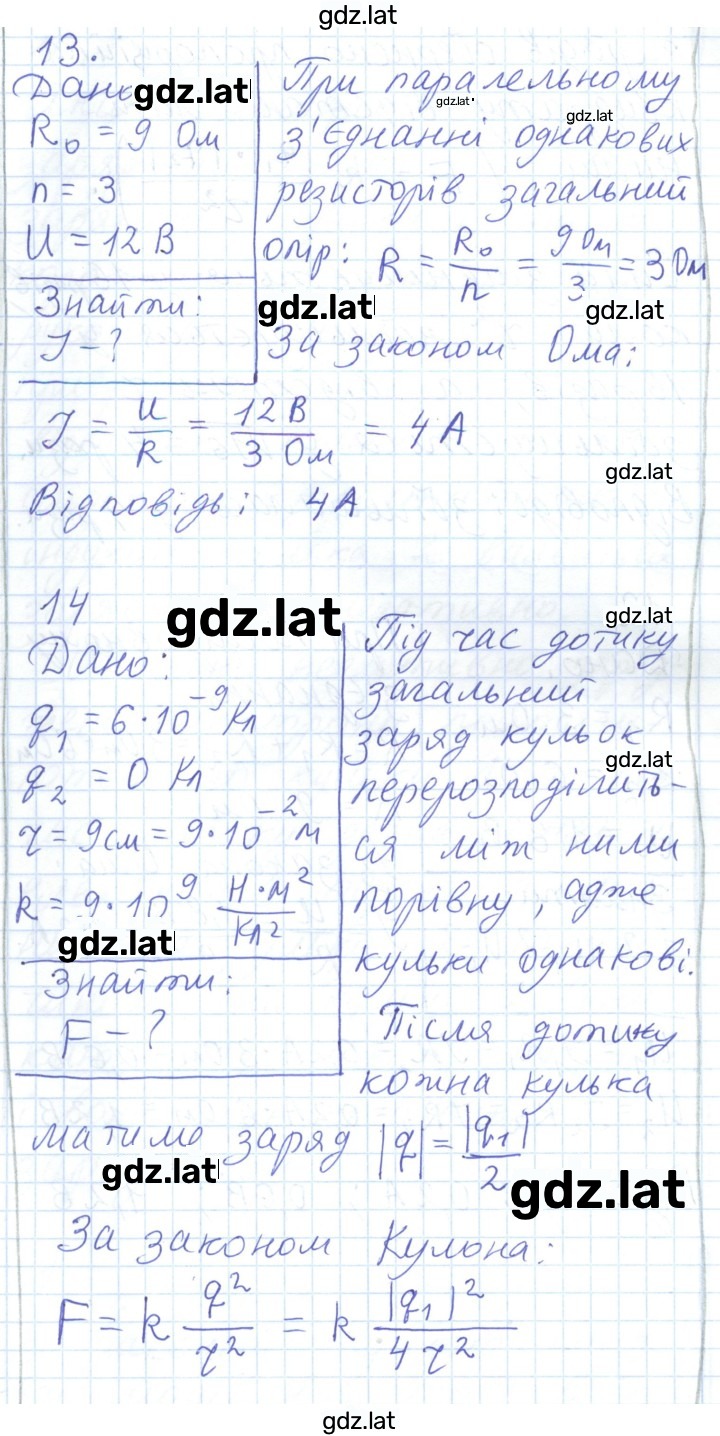 gdz.lat
13.
Дано: gdz.lat
R₀ = 9 Ом
n = 3
U = 12 В
Знайти:
I - ?
При паралельному
gdz.lat
gdz.lat
з'єднанні однакових
резисторів загальний
опір: R = R₀/n = 9 Ом/3 = 3 Ом
gdz.lat
gdz.lat
За законом Ома:
I = U/R = 12 В/3 Ом = 4 А
gdz.lat
Відповідь: 4 А
14
gdz.lat
Дано:
q₁ = 6·10⁻⁹ Кл
q₂ = 0 Кл
r = 9 см = 9·10⁻² м
k = 9·10⁹ Н·м²/Кл²
gdz.lat
Знайти:
F - ?
gdz.lat
Під час дотику
загальний
заряд кульок
gdz.lat
перерозподілить-
ся між ними
порівну, адже
кульки однакові.
Після дотику
кожна кулька
матимо заряд |q| = |q₁|/2
gdz.lat
gdz.lat
За законом Кулона:
F = k q²/r² = k |q₁|²/4r²
gdz.lat